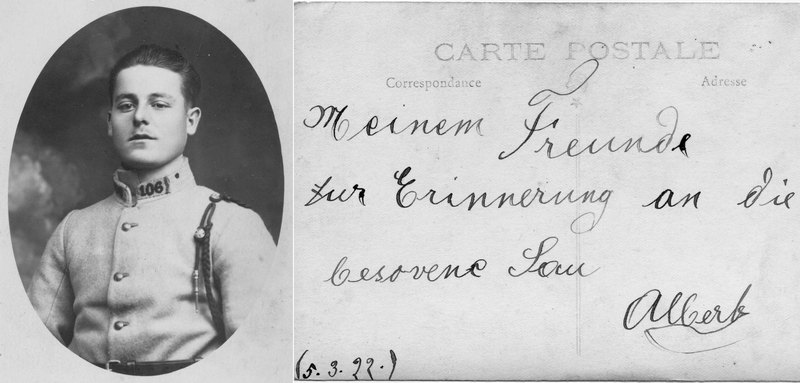 106
CARTE POSTALE
Correspondance
Adresse
Meinem Freunde
zur Erinnerung an die
besovene Sau
Albert
(5.3.22.)